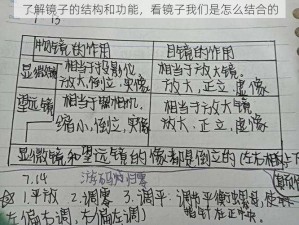 了解镜子的结构和功能，看镜子我们是怎么结合的
7 13
物镜的作用 目镜的作用
显微镜 相当于投影仪 相当于放大镜.
放大,倒立,实像 放大,正立,虚像
望远镜 相当于照相机. 相当于放大镜
缩小,倒立,实像 放大,正立,虚像
显微镜和望远镜的像都是倒立的(左右相反上下
7.14 游码归零
1.平放 2.调零 3.调平:调节平衡螺母,使
左偏右调,右偏左调) 指针在正中央.